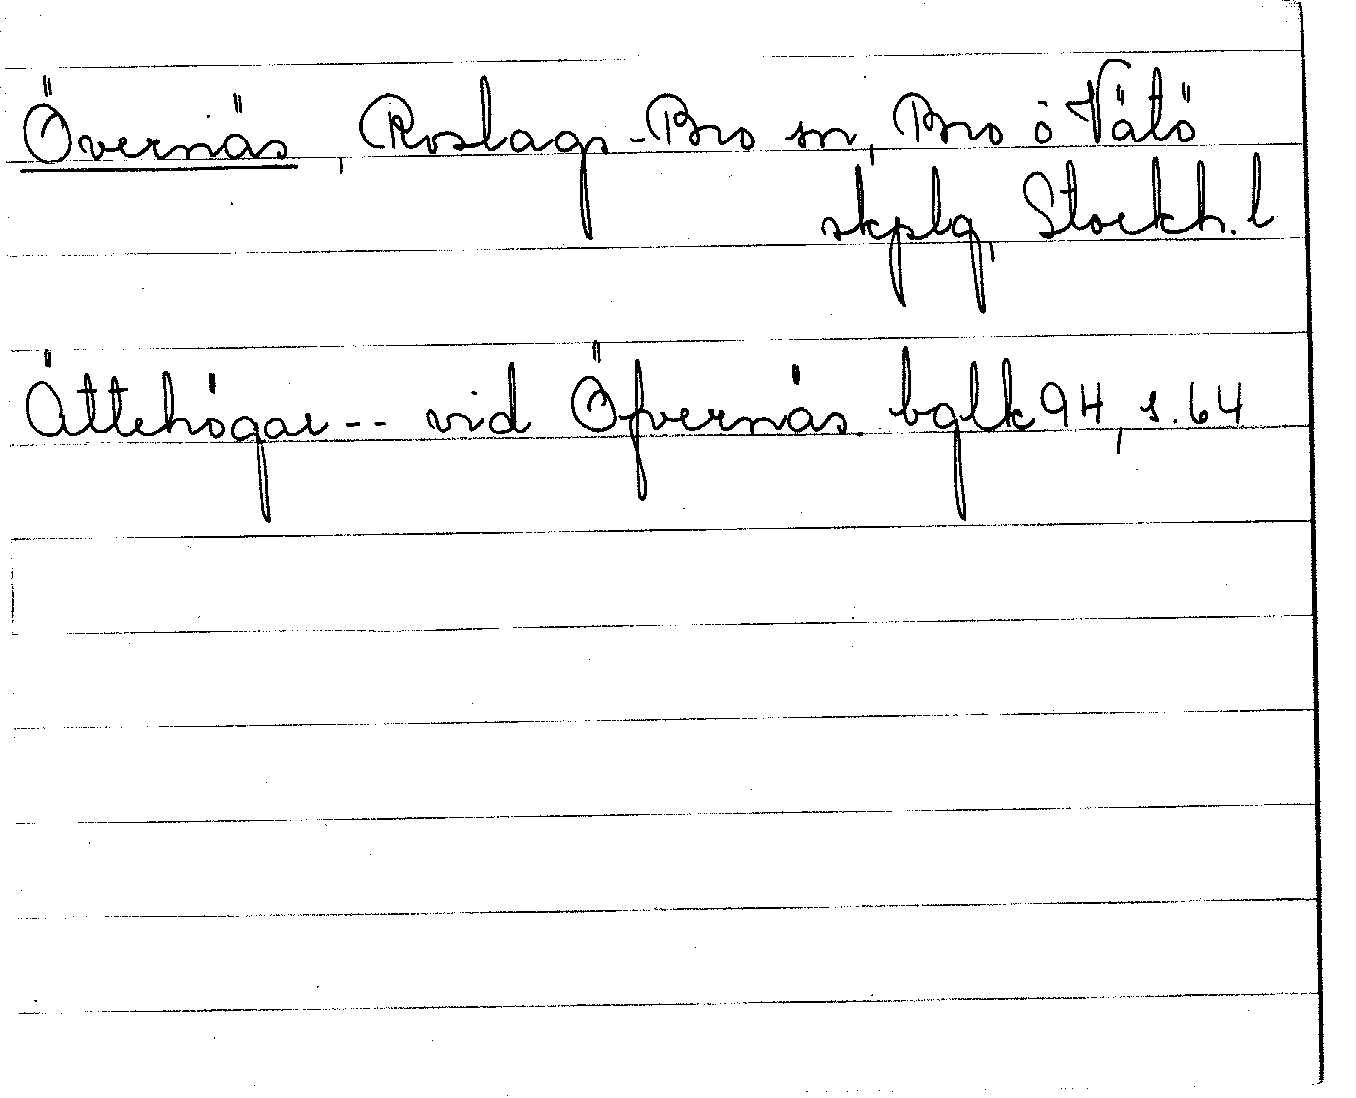 Övernäs, Roslags-Bro sn, Bro o Vätö
skplg, Stockh. l
Ättehögar -- vid Öfvernäs. bglk 94, s. 64